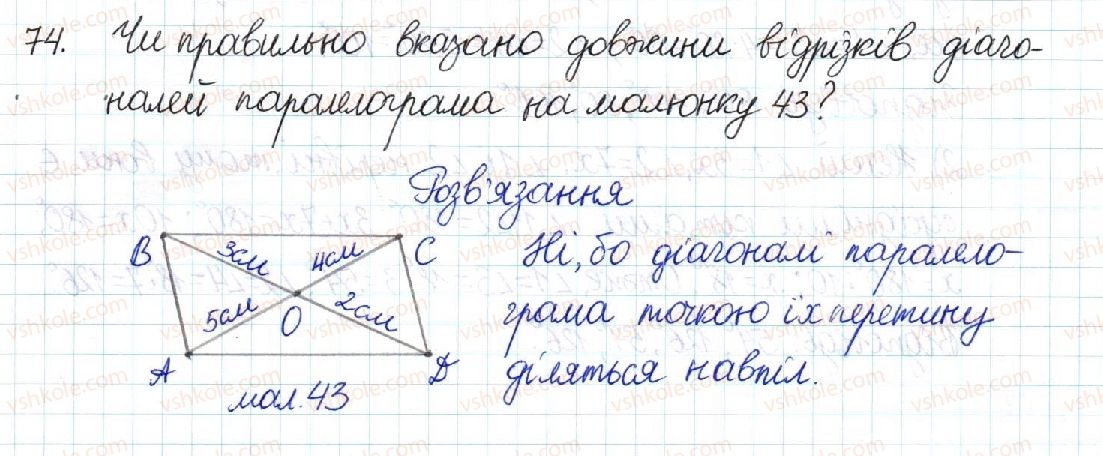 74. Чи правильно вказано довжини відрізків діаго-
налей паралелограма на малюнку 43?
Розв'язання
B 3см 4см C
5см O 2см
A D
мал. 43
Ні, бо діагоналі паралело-
грама точкою їх перетину
діляться навпіл.